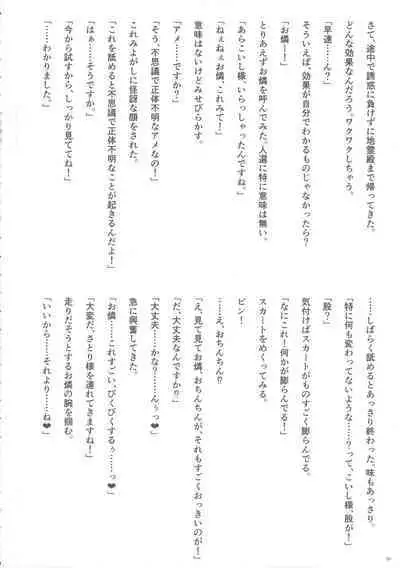 さて、途中で誘惑に負けずに地霊殿まで帰ってきた。
どんな効果なんだろう。ワクワクしちゃう。
そういえば、効果が自分でわかるものじゃなかったら？
「早速……ん？」
「お燐ー！」
とりあえずお燐を呼んでみた。人選に特に意味は無い。
「あらこいし様、いらっしゃったんですね。」
「ねぇねぇお燐、これみて！」
意味はないけどみせびらかす。
「アメ……ですか？」
「そう、不思議で正体不明なアメなの！」
これみよがしに怪訝な顔をされた。
「これを舐めると不思議で正体不明なことが起きるんだよ！」
「はぁ……そうですか。」
「今から試すから、しっかり見ててね！」
「……わかりました。」
……しばらく舐めるとあっさり終わった。味もあっさり。
「特に何も変わってないような……？って、こいし様、股が！」
「股？」
「なにこれ！何かが膨らんでる！」
気付けばスカートがものすごく膨らんでる。
スカートをめくってみる。
ピン！
「……え、おちんちん⁉」
「え、見て見てお燐、おちんちんが、それもすごくおっきいのが！」
「だ、大丈夫なんですか⁉」
「大丈夫……かな？……んぅっ♥」
急に興奮してきた。
「お燐……これすごい、びくびくするぅ……っ♥」
「大変だ、さとり様を連れてきますね！」
走りだそうとするお燐の腕を掴む。
「いいから……それより……ね♥」